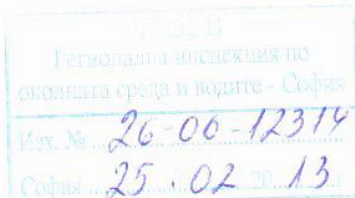 Регионална инспекция по
околната среда и водите - София
Изх. № 26-06-12314
София 25.02.2013 г.